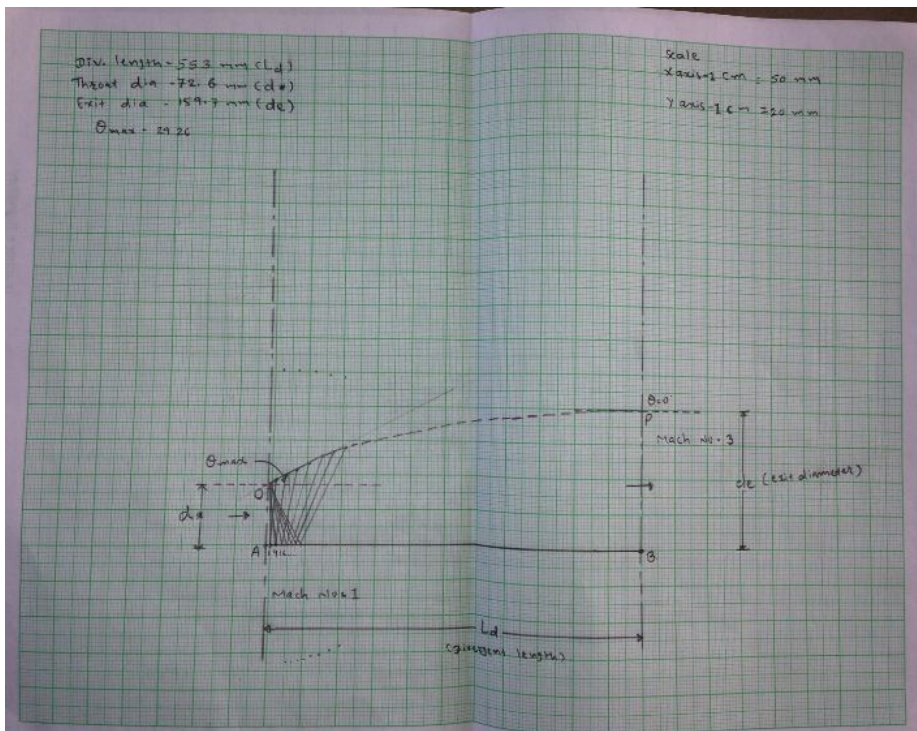 Div. length - 553 mm (Ld)
Throat dia - 72.6 mm (d*)
Exit dia - 159.7 mm (de)
θmax - 29.26
scale
X axis - 1 cm = 50 mm
Y axis - 1 cm = 20 mm
θ=0
P
Mach No. 3
θmax
O
de (exit diameter)
d*
A
B
Mach No. 1
Ld
(Divergent length)